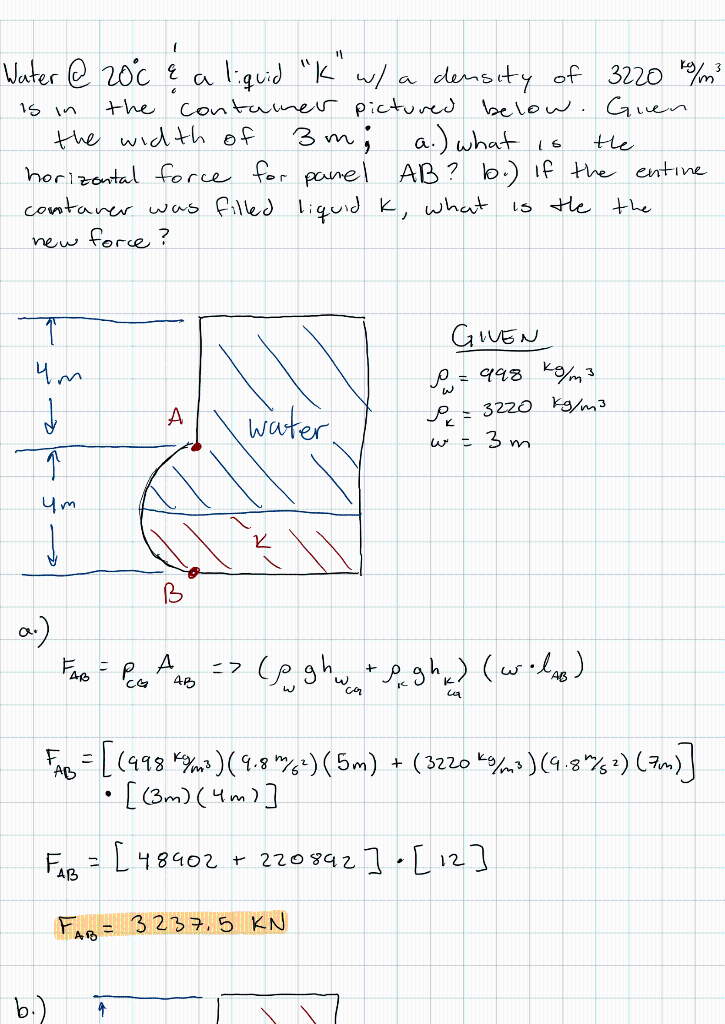 Water @ 20°C & a liquid "K" w/ a density of 3220 kg/m³
is in the container pictured below. Given
the width of 3 m; a.) what is the
horizontal force for panel AB? b.) If the entire
container was filled liquid K, what is the the
new force?
GIVEN
4m
ρ_w = 998 kg/m³
A
water
ρ_K = 3220 kg/m³
w = 3 m
4m
K
B
a.)
F_AB = P_CG A_AB => (ρ_w g h_w_CG + ρ_K g h_K_CG) (w · l_AB)
F_AB = [(998 kg/m³)(9.8 m/s²)(5m) + (3220 kg/m³)(9.8 m/s²)(7m)]
• [(3m)(4m)]
F_AB = [48902 + 220892] · [12]
F_AB = 3237.5 KN
b.)